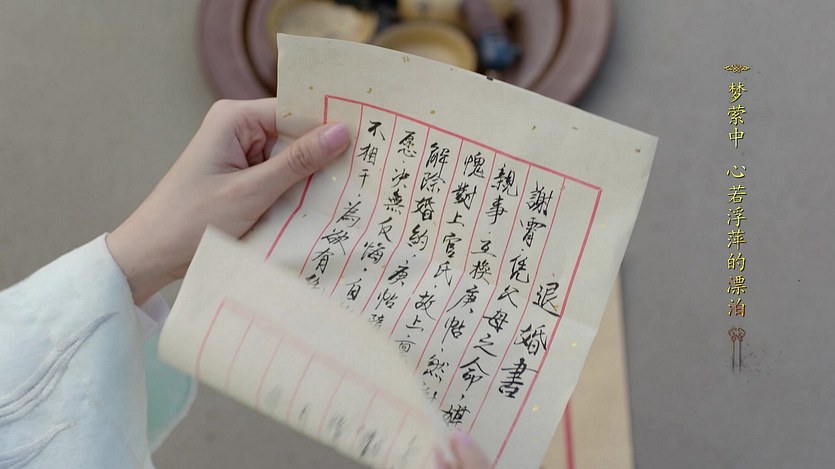 退婚書
謝霄·凭父母之命·媒
親事·互换庚帖·然
愧對上官氏·故上官
解除婚约·庚帖
愿·决無反悔·自
不相干·為欲有
梦萦中 心若浮萍的漂泊